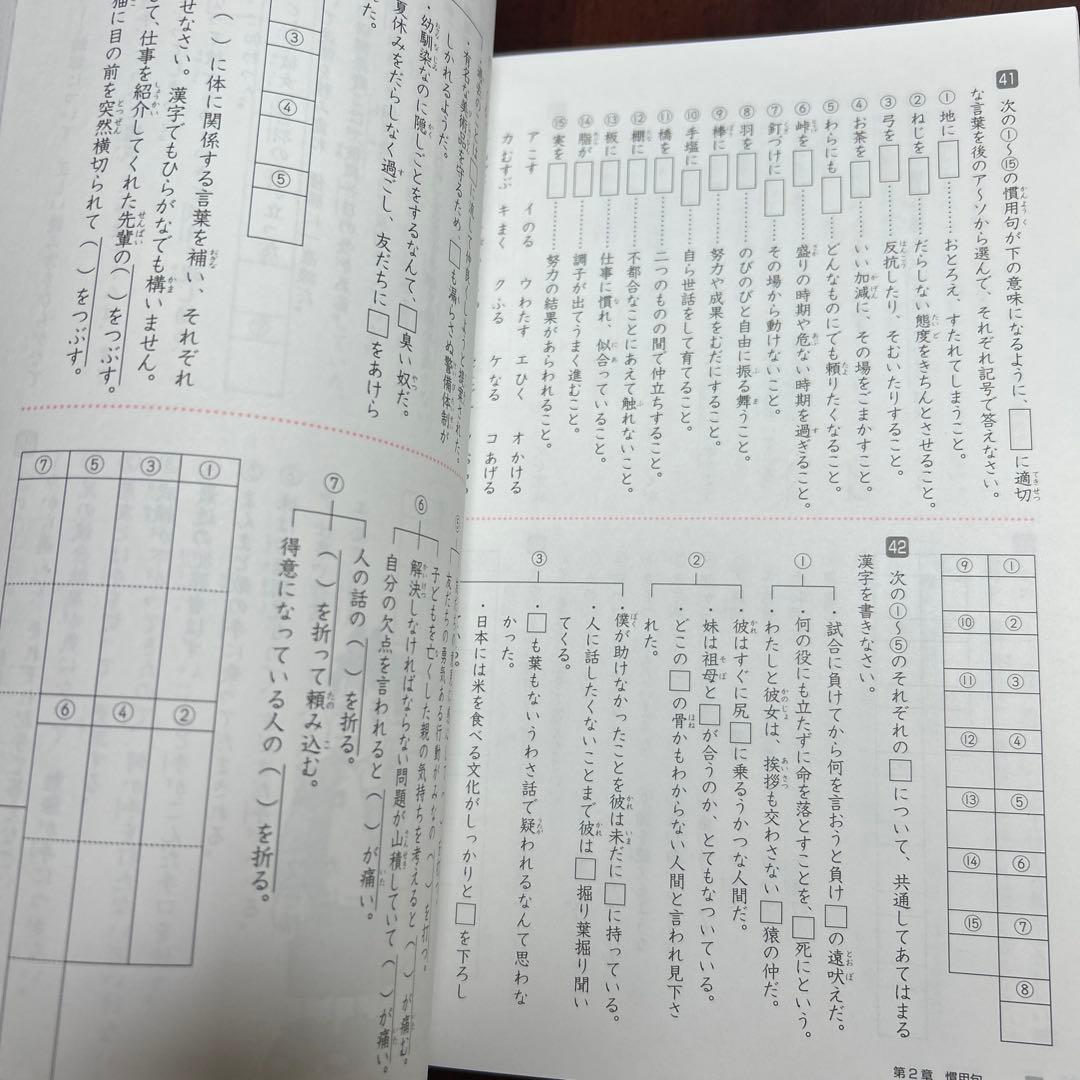 41 次の①〜⑮の慣用句が下の意味になるように、□に適切
な言葉を後のア〜ソから選んで、それぞれ記号で答えなさい。
①地に□………おとろえ、すたれてしまうこと。
②ねじを□………だらしない態度をきちんとさせること。
③弓を□………反抗したり、そむいたりすること。
④お茶を□………いい加減に、その場をごまかすこと。
⑤わらにも□………どんなものにでも頼りたくなること。
⑥峠を□………盛りの時期や危ない時期を過ぎること。
⑦釘づけに□………その場から動けないこと。
⑧羽を□………のびのびと自由に振る舞うこと。
⑨棒に□………努力や成果をむだにすること。
⑩手塩に□………自ら世話をして育てること。
⑪橋を□………二つのものの間で仲立ちすること。
⑫棚に□………不都合なことにあえて触れないこと。
⑬板に□………仕事に慣れ、似合っていること。
⑭脂が□………調子が出てうまく進むこと。
⑮実を□………努力の結果があらわれること。
ア こす イ のる ウ わたす エ ひく オ かける
カ むすぶ キ まく ク ふる ケ なる コ あげる
① ② ③ ④ ⑤ ⑥ ⑦ ⑧
⑨ ⑩ ⑪ ⑫ ⑬ ⑭ ⑮
42 次の①〜⑤のそれぞれの□について、共通してあてはまる
漢字を書きなさい。
①
・試合に負けてから何を言おうと負け□の遠吠えだ。
・何の役にも立たずに命を落とすことを、□死にという。
・わたしと彼女は、挨拶も交わさない□猿の仲だ。
②
彼はすぐに尻□に乗るうかつな人間だ。
・妹は祖母と□が合うのか、とてもなついている。
・どこの□の骨かもわからない人間と言われ見下さ
れた。
③
・僕が助けなかったことを彼は未だに□に持っている。
・人に話したくないことまで彼は□掘り葉掘り聞い
てくる。
・□も葉もないうわさ話で疑われるなんて思わな
かった。
・日本には米を食べる文化がしっかりと□を下ろし
第2章 慣用句
・有名な美術品を守るため□も漏らさぬ警備体制が
しかれるようだ。
・幼馴染なのに隠しごとをするなんて、□臭い奴だ。
夏休みをだらしなく過ごし、友だちに□をあけら
た。
③ ④ ⑤
( )に体に関係する言葉を補い、それぞれ
せなさい。漢字でもひらがなでも構いません。
て、仕事を紹介してくれた先輩の( )をつぶす。
猫に目の前を突然横切られて( )をつぶす。
⑤
⑥
子どもを亡くした親の気持ちを考えると( )が痛む。
解決しなければならない問題が山積していて( )が痛い。
自分の欠点を言われると( )が痛い。
⑦
人の話の( )を折る。
( )を折って頼み込む。
得意になっている人の( )を折る。
① ③ ⑤ ⑦
② ④ ⑥